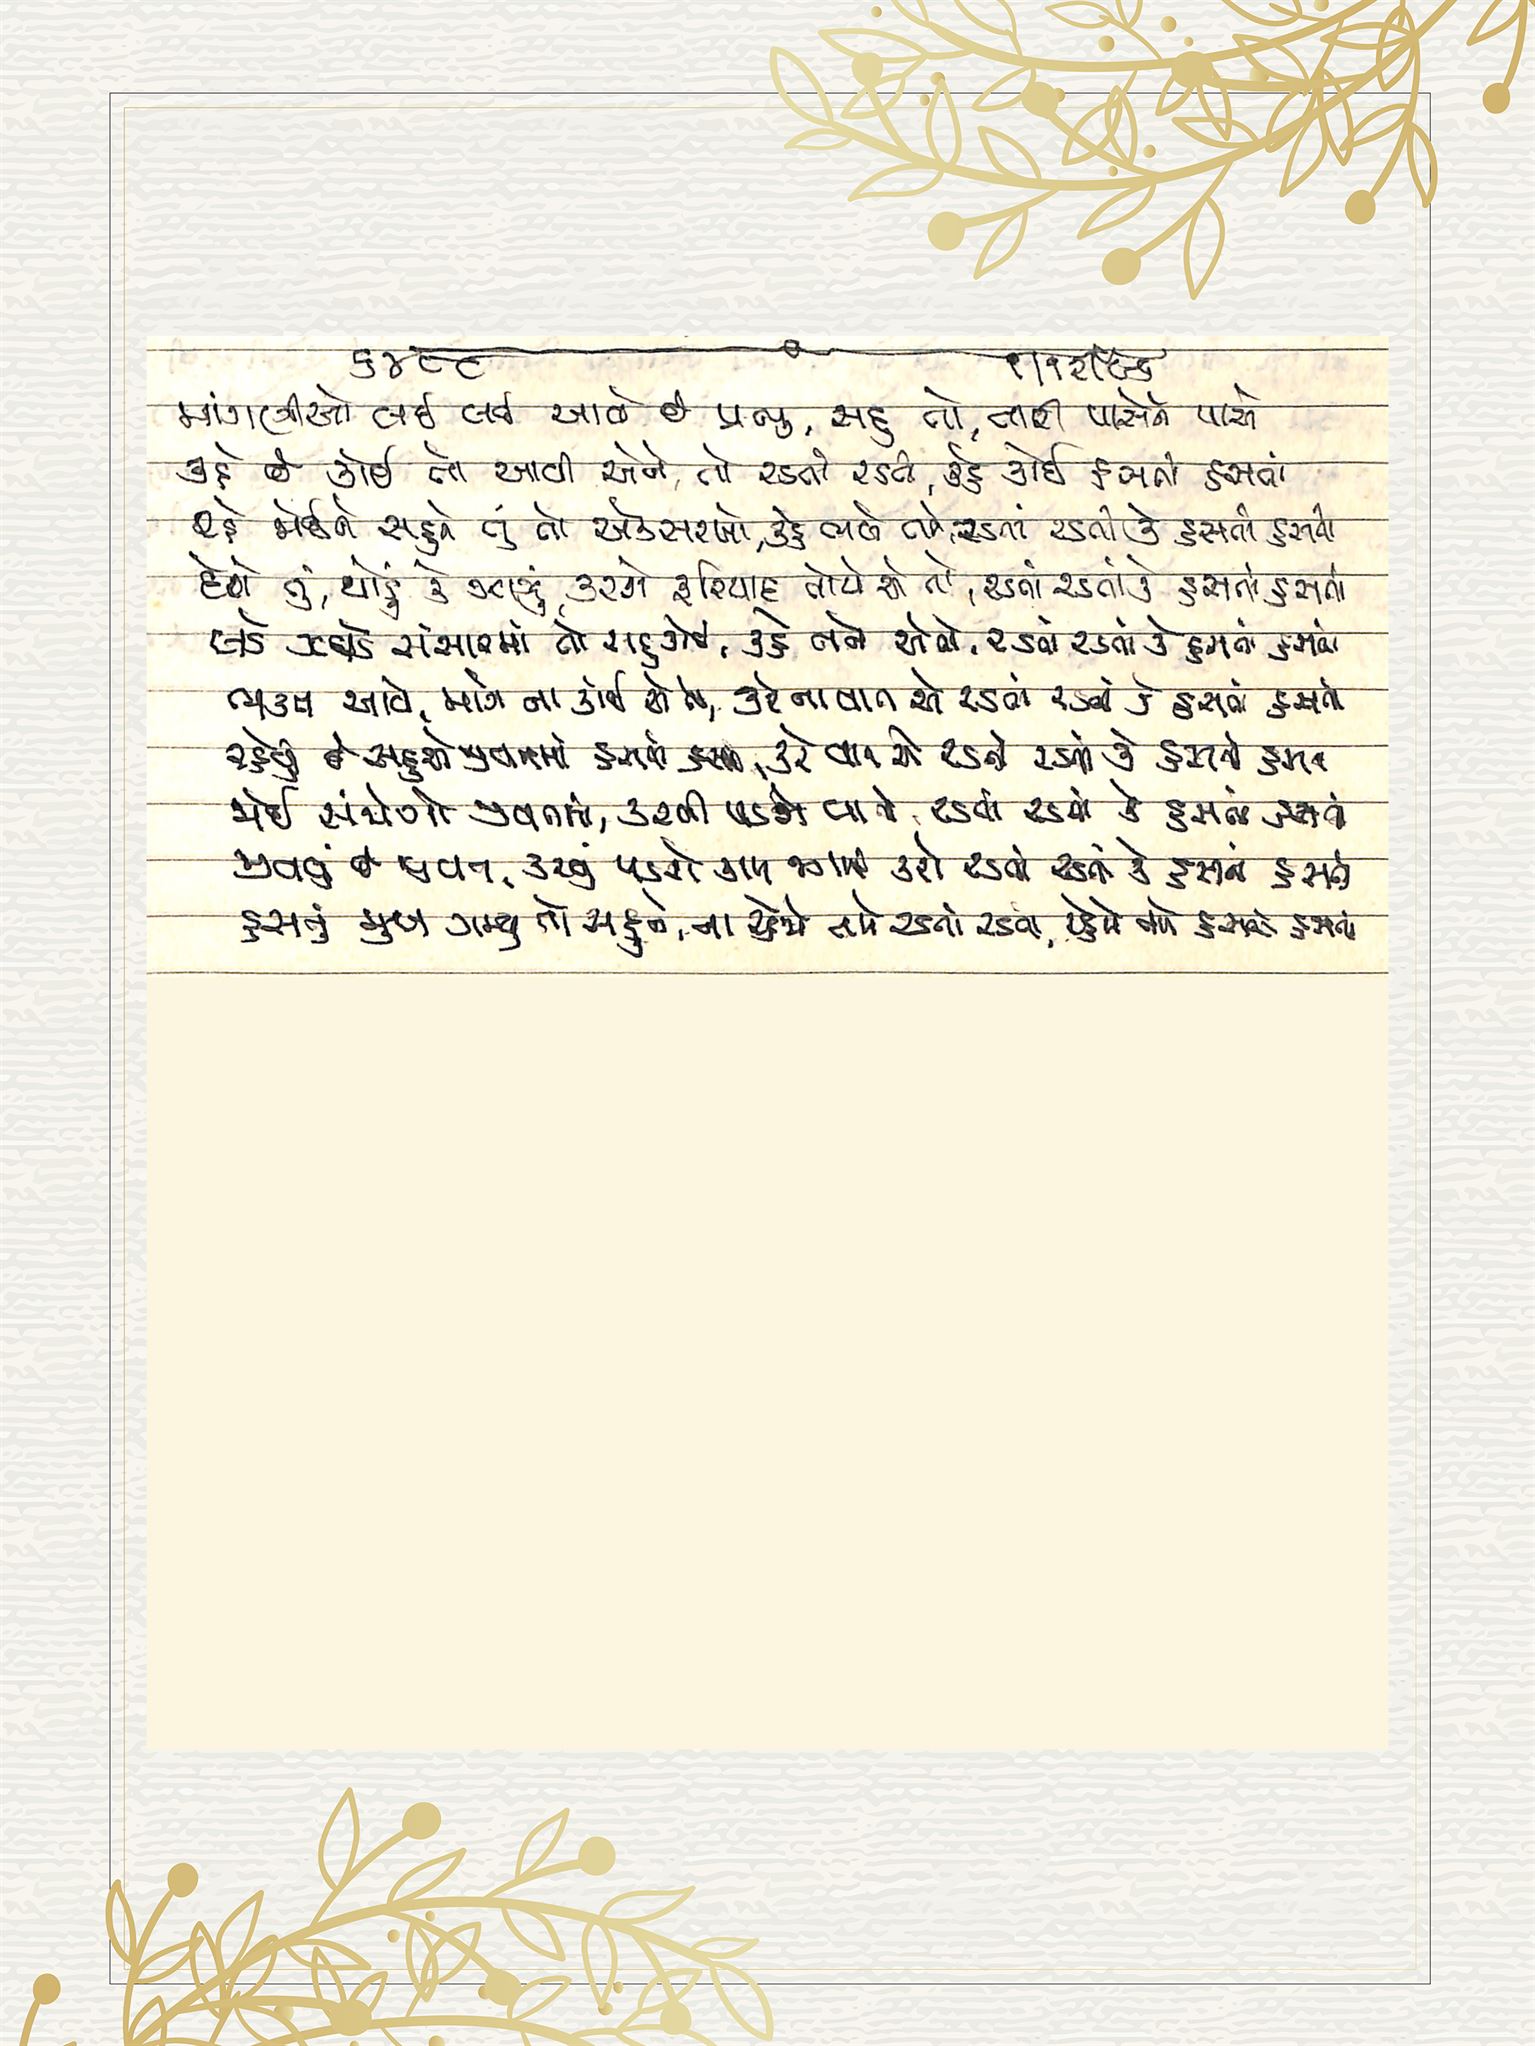 ૬૪૯૯
માંગણીઓ લઈ લઈ આવે છે પ્રભુ, સહુ તો, તારી પાસેને પાસે
કહે છે કોઈ તો આવી એને, તો રડતાં રડતાં, કહે કોઈ હસતાં હસતાં
જોઈને સહુને તું તો એકસરખો, કહે ભલે તને, રડતાં રડતાં કે હસતાં હસતાં
દેશે તું, થોડું કે ઝાઝું, કરશે ફરિયાદ તોયે એ તો, રડતાં રડતાં કે હસતાં હસતાં
સંસારમાં તો સહુ કોઈ, કહે તને એવો, રડતાં રડતાં કે હસતાં હસતાં
આવે, માંગે ના કોઈ એ, કરે ના વાત એ રડતાં રડતાં કે હસતાં હસતાં
રહેવું છે સહુએ જીવનમાં હસતાં હસતાં, કરે વાત એ રડતાં રડતાં કે હસતાં હસતાં
જોઈ સંજોગો જીવનમાં, કરવી પડશે વાતો, રડતાં રડતાં કે હસતાં હસતાં
જીવવું છે જીવન, કરવું પડશે કામ કરો રડતાં રડતાં કે હસતાં હસતાં
હસતું મુખ ગમ્યું તો સહુને, ના રડતાં રડતાં, હસતાં હસતાં